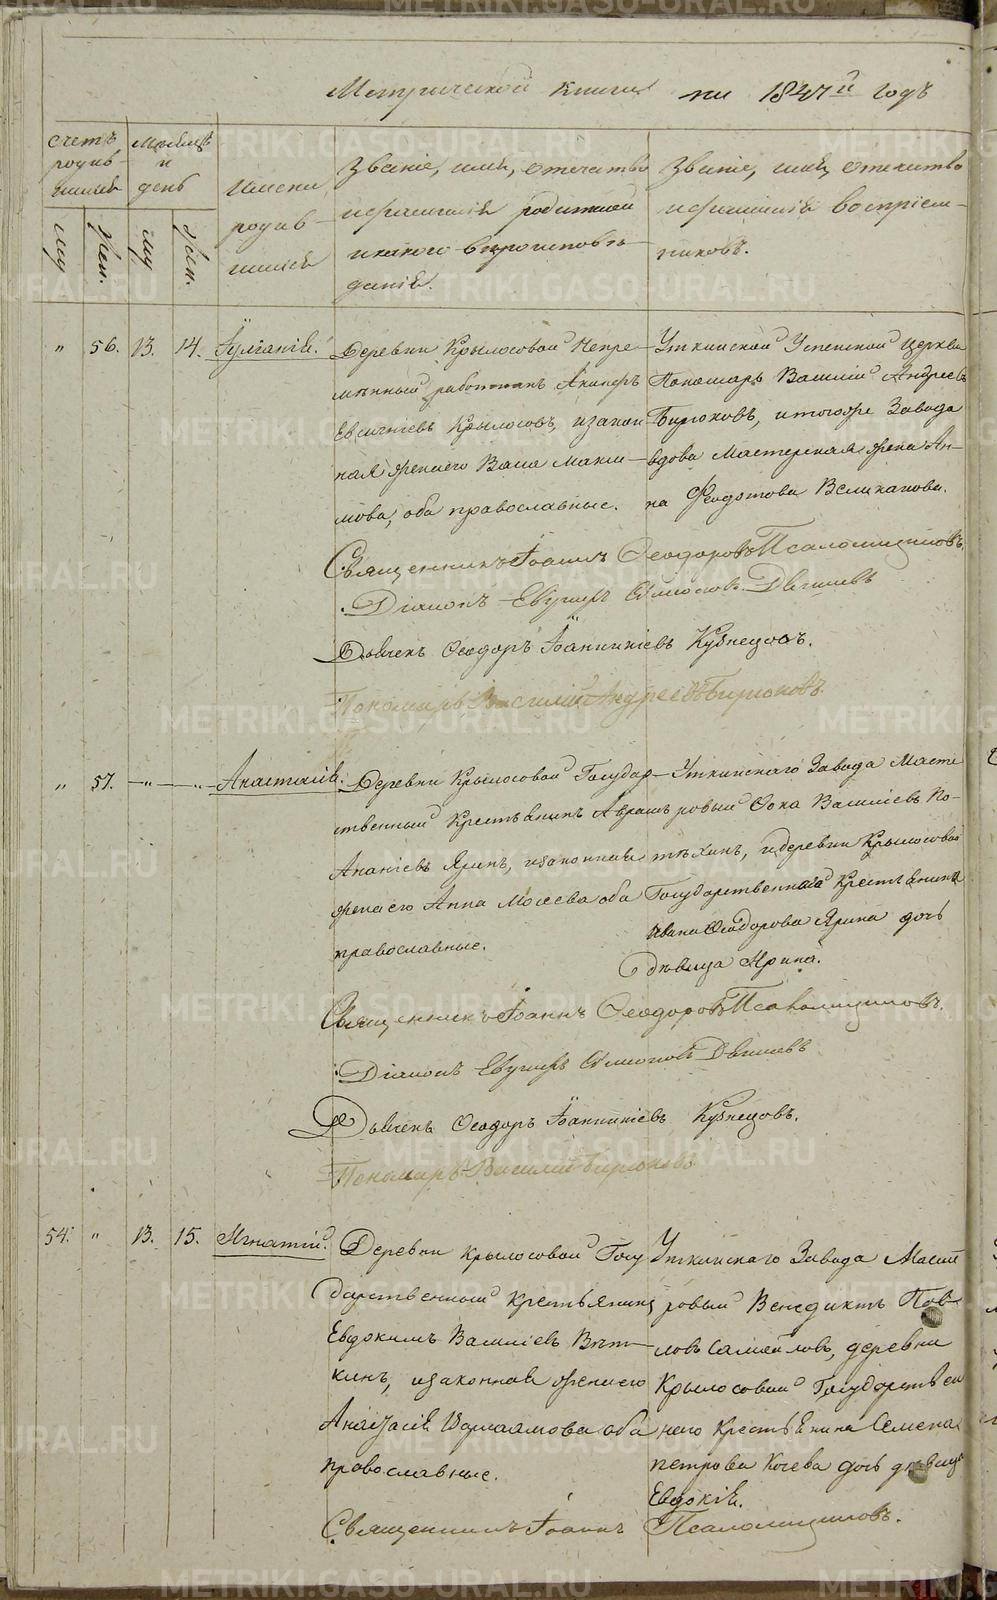 Метрической книги на 1847й годъ
Счетъ родив-шихся
Мѣсяцъ и день
Имена родив-шихся
Званіе, имя, отечество и фамилія родителей и какого вѣроисповѣ-данія.
Званіе, имя, отечество и фамилія воспріем-никовъ.
му Жен. му Жен.
" 56. 13. 14. Іуліанія.
Деревни Крылосовой Непре-
мѣнный работникъ
Евсигніевъ Крылосовъ, и закон-
ная жена его Васса Макси-
мова, оба православные.
Уткинской Успенской церкви
Пономарь Василій Андреевъ
Бирюковъ, и тогоже Завода
вдова Мастерская жена Ан-
на Феодотова Великанова.
Священникъ Іоаннъ Феодоровъ Псаломщиковъ.
Діаконъ Евгеній Симоновъ
Дьячекъ Феодоръ Іоанникіевъ Кузнецовъ.
Пономарь Василій Андреевъ Бирюковъ.
" 57. — " — " — Анастасія.
Деревни Крылосовой Государ-
ственный Крестьянинъ Аврамъ
Ананіевъ Яринъ, и законная
жена его Анна Моисеева оба
православные.
Уткинскаго Завода Масте-
ровый Фока Василіевъ По-
тѣхинъ, и деревни Крылосовой
Государственнаго Крестьянина
Ивана Феодорова Ярина дочь
дѣвица Ирина.
Священникъ Іоаннъ Феодоровъ Псаломщиковъ.
Діаконъ Евгеній Симоновъ
Дьячекъ Феодоръ Іоанникіевъ Кузнецовъ.
Пономарь Василій Бирюковъ
54. " 13. 15. Игнатій.
Деревни Крылосовой Госу
дарственный Крестьянинъ
Евдокимъ Василіевъ Вят-
кинъ, и законная жена его
Анастасія Варлаамова оба
православные.
Уткинскаго Завода Масте
ровый Венедиктъ Пав-
ловъ Самойловъ, деревни
Крылосовой Государствен
наго Крестьянина Семена
Петрова Кочева дочь дѣвица
Евдокія.
Священникъ Іоаннъ Псаломщиковъ.
METRIKI.GASO-URAL.RU